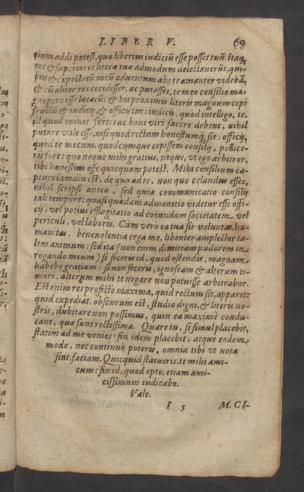 LIBER V. 69
tium addi potest, quo liberius iudiciũ esse posset tuũ. Itaq;
me & superiores literæ tuæ admodum delectauerũt, qui-
bus & expectatũ meũ aduentum abs te amanter videbã,
& cũ aliter res cecidisset, ac putasses, te meo consilio ma-
gnopere esse lætatũ: & his proximis literis magnum cepi
fructũ & iudicij, & officij tui: iudicij, quod intellego, te,
id quod omnes fortes ac boni viri facere debent, nihil
putare vtile esse, nisi quod rectum honestumq́; sit: officij,
quod te mecum, quodcumque cepissem consilij, pollice-
ris fore: quo neque mihi gratius, neque, vt ego arbitror,
tibi honestius esse quicquam potest. Mihi consilium ca-
ptum iamdiu est. de quo ad te, non quo celandus esses,
nihil scripsi antea, sed quia communicatio consilij
tali tempore, quasi quædam admonitio videtur esse offi-
cij, vel potius efflagitatio ad coëundam societatem vel
periculi, vel laboris. Cum vero ea tua sit voluntas, hu-
manitas, beneuolentia erga me, libenter amplector ta-
lem animum: sed ita (non enim dimittam pudorem in
rogando meum) si feceris id, quod ostendis, magnam
habebo gratiam: si non feceris, ignoscam: & alterum ti-
mori, alterum mihi te negare non potuisse arbitrabor.
Est enim res profecto maxima, quid rectum sit, apparet:
quid expediat, obscurum est, studio digni, & literis no-
stris, dubitare non possimus, quin ea maxime condu-
cant, quæ sunt rectissima. Quare tu, si simul placebit,
statim ad me venies: sin idem placebit, atque eodem
modo, nec continuò poteris, omnia tibi vt nota
sint, faciam. Quicquid statueris, te mihi ami-
cum: sin id, quod opto, etiam ami-
cissimum iudicabo.
Vale.
I 5 M. CI-